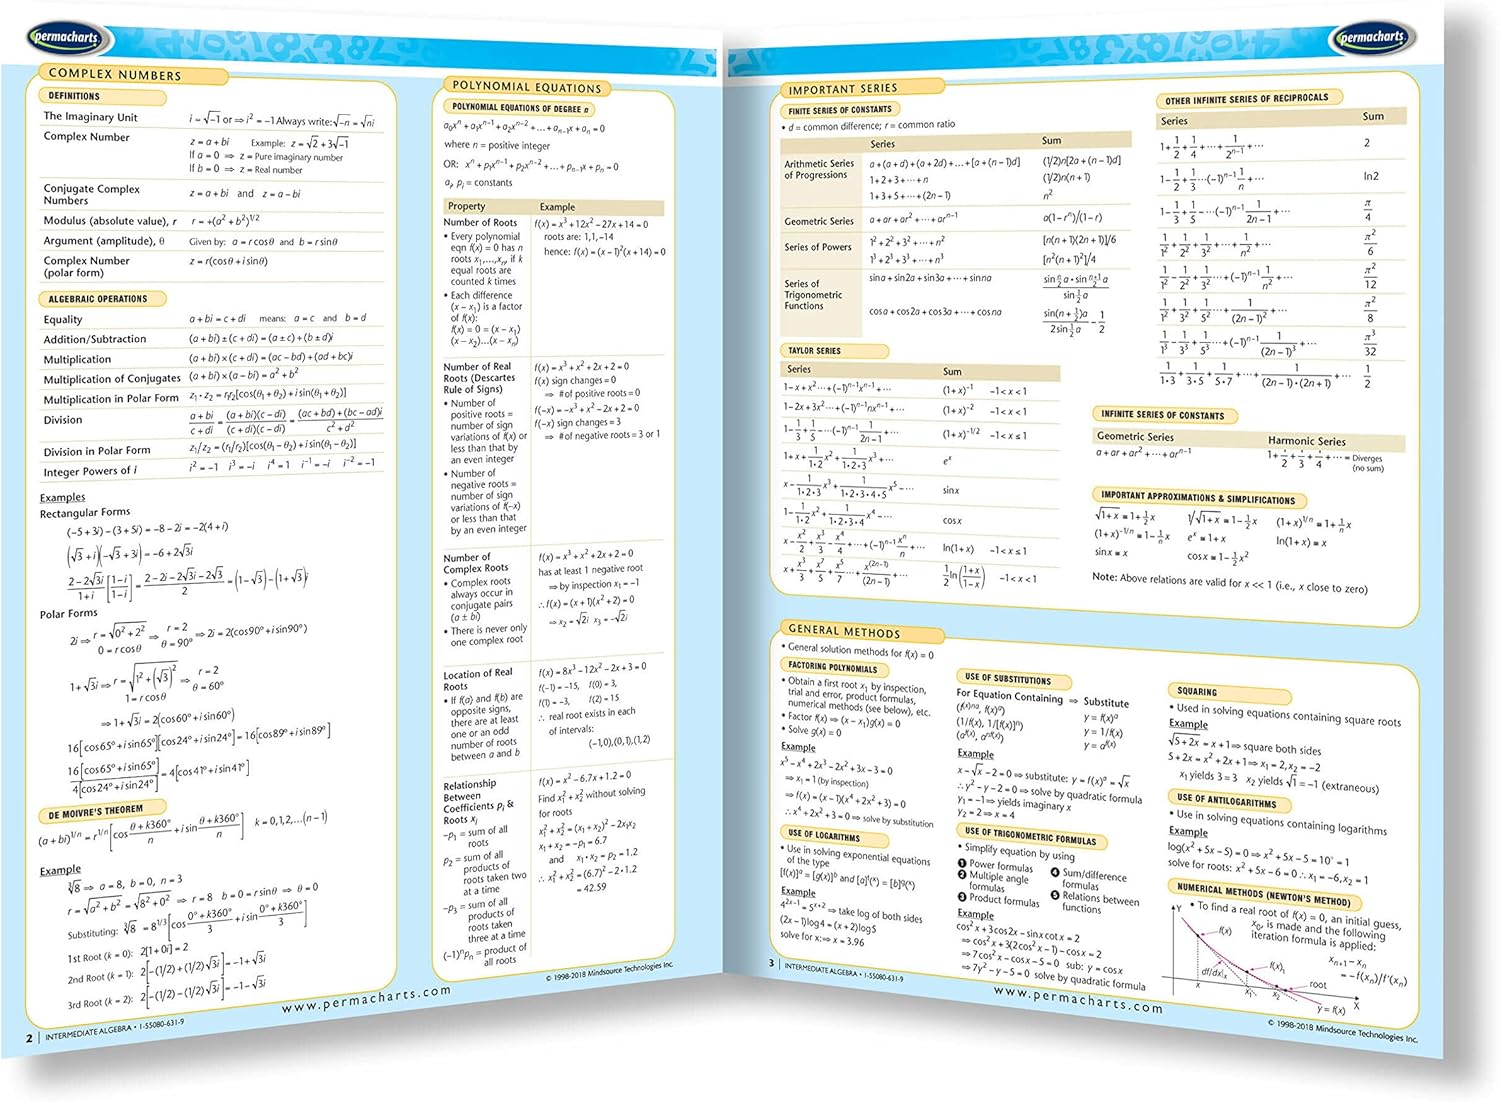 permacharts.
COMPLEX NUMBERS
DEFINITIONS
The Imaginary Unit i = √-1 or ⇒ i² = -1 Always write: √-n = √ni
Complex Number z = a + bi Example: z = √2 + 3√-1
If a = 0 ⇒ z = Pure imaginary number
If b = 0 ⇒ z = Real number
Conjugate Complex z = a + bi and z = a - bi
Numbers
Modulus (absolute value), r r = +(a² + b²)^1/2
Argument (amplitude), θ Given by: a = r cosθ and b = r sinθ
Complex Number z = r(cosθ + i sinθ)
(polar form)
ALGEBRAIC OPERATIONS
Equality a + bi = c + di means: a = c and b = d
Addition/Subtraction (a + bi) ± (c + di) = (a ± c) + (b ± d)i
Multiplication (a + bi) × (c + di) = (ac - bd) + (ad + bc)i
Multiplication of Conjugates (a + bi) × (a - bi) = a² + b²
Multiplication in Polar Form z₁ · z₂ = r₁r₂[cos(θ₁ + θ₂) + i sin(θ₁ + θ₂)]
Division (a + bi)/(c + di) = (a + bi)(c - di)/(c + di)(c - di) = (ac + bd) + (bc - ad)i/c² + d²
Division in Polar Form z₁/z₂ = (r₁/r₂)[cos(θ₁ - θ₂) + i sin(θ₁ - θ₂)]
Integer Powers of i i² = -1 i³ = -i i⁴ = 1 i⁻¹ = -i i⁻² = -1
Examples
Rectangular Forms
(-5 + 3i) - (3 + 5i) = -8 - 2i = -2(4 + i)
(√3 + i)(-√3 + 3i) = -6 + 2√3i
(2 - 2√3i)/(1 + i) [(1 - i)/(1 - i)] = (2 - 2i - 2√3i - 2√3)/2 = (1 - √3) - (1 + √3)i
Polar Forms
2i ⇒ r = √0² + 2² ⇒ r = 2 ⇒ 2i = 2(cos90° + i sin90°)
0 = r cosθ θ = 90°
1 + √3i ⇒ r = √1² + (√3)² ⇒ r = 2
1 = r cosθ θ = 60°
⇒ 1 + √3i = 2(cos60° + i sin60°)
16[cos65° + i sin65°][cos24° + i sin24°] = 16[cos89° + i sin89°]
16[cos65° + i sin65°]/4[cos24° + i sin24°] = 4[cos41° + i sin41°]
DE MOIVRE'S THEOREM
(a + bi)^1/n = r^1/n[cos (θ + k360°)/n + i sin (θ + k360°)/n] k = 0,1,2,...(n - 1)
Example
∛8 ⇒ a = 8, b = 0, n = 3
r = √a² + b² = √8² + 0² ⇒ r = 8 b = 0 = r sinθ ⇒ θ = 0
Substituting: ∛8 = 8^1/3[cos (0° + k360°)/3 + i sin (0° + k360°)/3]
1st Root (k = 0): 2[1 + 0i] = 2
2nd Root (k = 1): 2[-(1/2) + (1/2)√3i] = -1 + √3i
3rd Root (k = 2): 2[-(1/2) - (1/2)√3i] = -1 - √3i
2 | INTERMEDIATE ALGEBRA • 1-55080-631-9
POLYNOMIAL EQUATIONS
POLYNOMIAL EQUATIONS OF DEGREE n
a₀xⁿ + a₁xⁿ⁻¹ + a₂xⁿ⁻² + ... + aₙ₋₁x + aₙ = 0
where n = positive integer
OR: xⁿ + p₁xⁿ⁻¹ + p₂xⁿ⁻² + ... + pₙ₋₁x + pₙ = 0
aᵢ, pᵢ = constants
Property Example
Number of Roots
• Every polynomial
eqn f(x) = 0 has n
roots x₁,...,xₙ, if k
equal roots are
counted k times
• Each difference
(x - x₁) is a factor
of f(x):
f(x) = 0 = (x - x₁)
(x - x₂)...(x - xₙ)
f(x) = x³ + 12x² - 27x + 14 = 0
roots are: 1,1,-14
hence: f(x) = (x - 1)²(x + 14) = 0
Number of Real
Roots (Descartes
Rule of Signs)
• Number of
positive roots =
number of sign
variations of f(x) or
less than that by
an even integer
• Number of
negative roots =
number of sign
variations of f(-x)
or less than that
by an even integer
f(x) = x³ + x² + 2x + 2 = 0
f(x) sign changes = 0
⇒ # of positive roots = 0
f(-x) = -x³ + x² - 2x + 2 = 0
f(-x) sign changes = 3
⇒ # of negative roots = 3 or 1
Number of
Complex Roots
• Complex roots
always occur in
conjugate pairs
(a ± bi)
• There is never only
one complex root
f(x) = x³ + x² + 2x + 2 = 0
has at least 1 negative root
⇒ by inspection x₁ = -1
∴ f(x) = (x + 1)(x² + 2) = 0
⇒ x₂ = √2i x₃ = -√2i
Location of Real
Roots
• If f(a) and f(b) are
opposite signs,
there are at least
one or an odd
number of roots
between a and b
f(x) = 8x³ - 12x² - 2x + 3 = 0
f(-1) = -15, f(0) = 3,
f(1) = -3, f(2) = 15
∴ real root exists in each
of intervals:
(-1,0),(0,1),(1,2)
Relationship
Between
Coefficients pᵢ &
Roots xᵢ
-p₁ = sum of all
roots
p₂ = sum of all
products of
roots taken two
at a time
-p₃ = sum of all
products of
roots taken
three at a time
(-1)ⁿpₙ = product of
all roots
f(x) = x² - 6.7x + 1.2 = 0
Find x₁² + x₂² without solving
for roots
x₁² + x₂² = (x₁ + x₂)² - 2x₁x₂
x₁ + x₂ = -p₁ = 6.7
and x₁ · x₂ = p₂ = 1.2
∴ x₁² + x₂² = (6.7)² - 2 · 1.2
= 42.59
© 1998-2018 Mindsource Technologies Inc.
www.permacharts.com
permacharts.
IMPORTANT SERIES
FINITE SERIES OF CONSTANTS
• d = common difference; r = common ratio
Series Sum
Arithmetic Series a + (a + d) + (a + 2d) + ... + [a + (n - 1)d] (1/2)n[2a + (n - 1)d]
of Progressions 1 + 2 + 3 + ··· + n (1/2)n(n + 1)
1 + 3 + 5 + ··· + (2n - 1) n²
Geometric Series a + ar + ar² + ··· + arⁿ⁻¹ a(1 - rⁿ)/(1 - r)
Series of Powers 1² + 2² + 3² + ··· + n² [n(n + 1)(2n + 1)]/6
1³ + 2³ + 3³ + ··· + n³ [n²(n + 1)²]/4
Series of
Trigonometric
Functions
sin a + sin2a + sin3a + ··· + sin na sin n/2 a · sin (n+1)/2 a / sin 1/2 a
cos a + cos2a + cos3a + ··· + cos na sin(n + 1/2)a / 2 sin 1/2 a - 1/2
TAYLOR SERIES
Series Sum
1 - x + x² ··· + (-1)ⁿ⁻¹xⁿ⁻¹ + ··· (1 + x)⁻¹ -1 < x < 1
1 - 2x + 3x² ··· + (-1)ⁿ⁻¹nxⁿ⁻¹ + ··· (1 + x)⁻² -1 < x < 1
1 - 1/3 + 1/5 ··· -(-1)ⁿ⁻¹ 1/(2n - 1) ··· (1 + x)^-1/2 -1 < x ≤ 1
1 + x + 1/(1·2) x² + 1/(1·2·3) x³ + ··· eˣ
x - 1/(1·2·3) x³ + 1/(1·2·3·4·5) x⁵ - ··· sin x
1 - 1/(1·2) x² + 1/(1·2·3·4) x⁴ - ··· cos x
x - x²/2 + x³/3 - x⁴/4 + ··· + (-1)ⁿ⁻¹ xⁿ/n + ··· ln(1 + x) -1 < x ≤ 1
x + x³/3 + x⁵/5 + x⁷/7 ··· x^(2n-1)/(2n - 1) + ··· 1/2 ln((1 + x)/(1 - x)) -1 < x < 1
OTHER INFINITE SERIES OF RECIPROCALS
Series Sum
1 + 1/2 + 1/4 + ··· + 1/2ⁿ⁻¹ + ··· 2
1 - 1/2 + 1/3 ··· (-1)ⁿ⁻¹ 1/n + ··· ln2
1 - 1/3 + 1/5 - ··· (-1)ⁿ⁻¹ 1/(2n - 1) ··· π/4
1/1² + 1/2² + 1/3² + ··· + 1/n² + ··· π²/6
1/1² - 1/2² + 1/3² - ··· + (-1)ⁿ⁻¹ 1/n² + ··· π²/12
1/1² + 1/3² + 1/5² + ··· + 1/(2n - 1)² + ··· π²/8
1/1³ - 1/3³ + 1/5³ - ··· + (-1)ⁿ⁻¹ 1/(2n - 1)³ + ··· π³/32
1/1·3 + 1/3·5 + 1/5·7 + ··· + 1/(2n - 1)·(2n + 1) + ··· 1/2
INFINITE SERIES OF CONSTANTS
Geometric Series Harmonic Series
a + ar + ar² + ··· + arⁿ⁻¹ 1 + 1/2 + 1/3 + 1/4 + ··· = Diverges
(no sum)
IMPORTANT APPROXIMATIONS & SIMPLIFICATIONS
√1 + x ≡ 1 + 1/2 x 1/√1 + x ≡ 1 - 1/2 x (1 + x)^1/n ≡ 1 + 1/n x
(1 + x)^-1/n ≡ 1 - 1/n x eˣ ≡ 1 + x ln(1 + x) ≡ x
sin x ≡ x cos x ≡ 1 - 1/2 x²
Note: Above relations are valid for x << 1 (i.e., x close to zero)
GENERAL METHODS
• General solution methods for f(x) = 0
FACTORING POLYNOMIALS
• Obtain a first root x₁ by inspection,
trial and error, product formulas,
numerical methods (see below), etc.
• Factor f(x) ⇒ (x - x₁)g(x) = 0
• Solve g(x) = 0
Example
x⁵ - x⁴ + 2x³ - 2x² + 3x - 3 = 0
⇒ x₁ = 1 (by inspection)
⇒ f(x) = (x - 1)(x⁴ + 2x² + 3) = 0
∴ x⁴ + 2x² + 3 = 0 ⇒ solve by substitution
USE OF LOGARITHMS
• Use in solving exponential equations
of the type
[f(x)]ᵃ = [g(x)]ᵇ and [a]ᶠ⁽ˣ⁾ = [b]ᵍ⁽ˣ⁾
Example
4²ˣ⁻¹ = 5ˣ⁺² ⇒ take log of both sides
(2x - 1)log4 = (x + 2)log5
solve for x: ⇒ x = 3.96
USE OF SUBSTITUTIONS
For Equation Containing ⇒ Substitute
(f(x)ⁿᵃ, f(x)ᵃ) y = f(x)ᵃ
(1/f(x), 1/[f(x)]ⁿ) y = 1/f(x)
(aᶠ⁽ˣ⁾, aⁿᶠ⁽ˣ⁾) y = aᶠ⁽ˣ⁾
Example
x - √x - 2 = 0 ⇒ substitute: y = f(x)ᵃ = √x
∴ y² - y - 2 = 0 ⇒ solve by quadratic formula
y₁ = -1 ⇒ yields imaginary x
y₂ = 2 ⇒ x = 4
USE OF TRIGONOMETRIC FORMULAS
• Simplify equation by using
❶ Power formulas
❷ Multiple angle
formulas
❸ Product formulas
❹ Sum/difference
formulas
❺ Relations between
functions
Example
cos²x + 3cos2x - sin x cot x = 2
⇒ cos²x + 3(2cos²x - 1) - cos x = 2
⇒ 7cos²x - cos x - 5 = 0 sub: y = cos x
⇒ 7y² - y - 5 = 0 solve by quadratic formula
SQUARING
• Used in solving equations containing square roots
Example
√5 + 2x = x + 1 ⇒ square both sides
5 + 2x = x² + 2x + 1 ⇒ x₁ = 2, x₂ = -2
x₁ yields 3 = 3 x₂ yields √1 = -1 (extraneous)
USE OF ANTILOGARITHMS
• Use in solving equations containing logarithms
Example
log(x² + 5x - 5) = 0 ⇒ x² + 5x - 5 = 10° = 1
solve for roots: x² + 5x - 6 = 0 ∴ x₁ = -6, x₂ = 1
NUMERICAL METHODS (NEWTON'S METHOD)
• To find a real root of f(x) = 0, an initial guess,
x₀, is made and the following
iteration formula is applied:
xₙ₊₁ - xₙ
= -f(xₙ)/f'(xₙ)
Y
f(x)
df/dx|x
f(x)₁
root
x
x₁
x₂
X
y = f(x)
3 | INTERMEDIATE ALGEBRA • 1-55080-631-9
www.permacharts.com
© 1998-2018 Mindsource Technologies Inc.